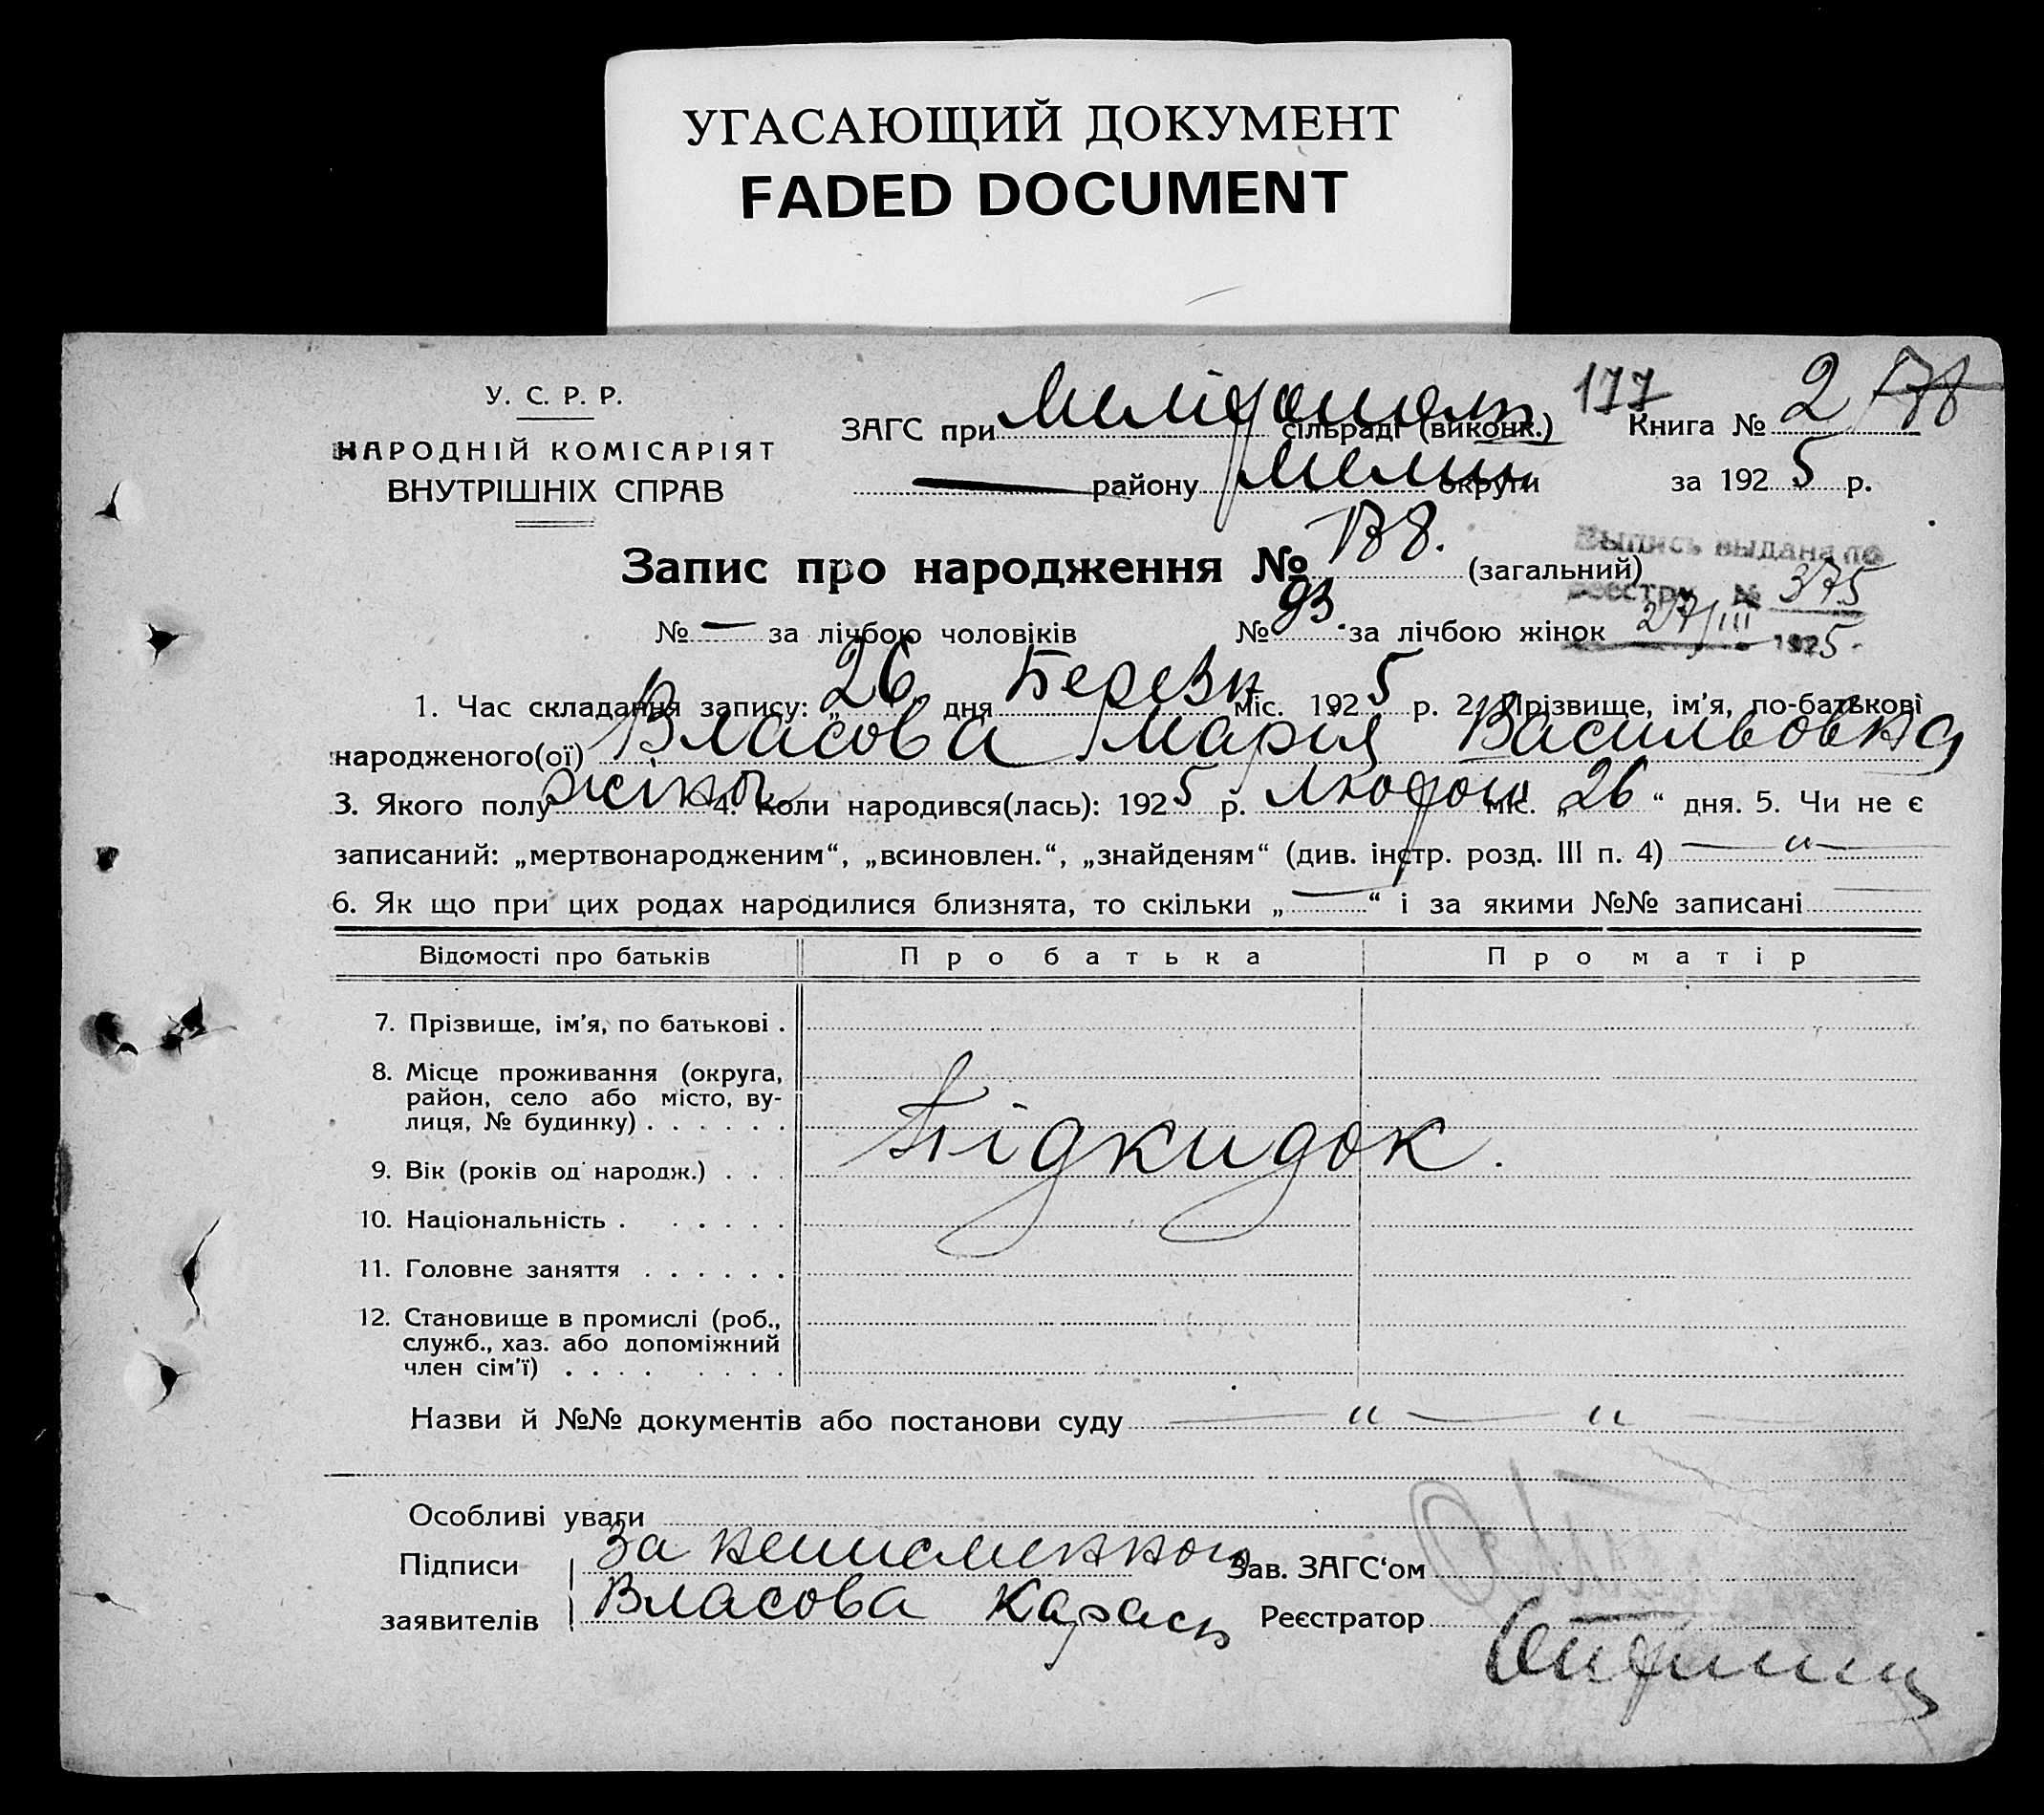 УГАСАЮЩИЙ ДОКУМЕНТ
FADED DOCUMENT
У. С. Р. Р.
НАРОДНІЙ КОМІСАРІЯТ
ВНУТРІШНІХ СПРАВ
ЗАГС при сільраді (виконк.)
177
Книга № 2 178
району округи
за 1925 р.
Запис про народження № (загальний)
Выпись выдана по
реестру № 375
27/III 1925.
№ — за лічбою чоловіків № 93. за лічбою жінок
1. Час складання запису: „26 дня Березн міс. 1925 р. 2. Прізвище, ім'я, по-батькові
народженого(ої) Власова Марія Васильовна
3. Якого полу жіноч 4. Коли народився(лась): 1925 р. Лютого міс. „26“ дня. 5. Чи не є
записаний: „мертвонародженим“, „всиновлен.“, „знайденям“ (див. інстр. розд. III п. 4) — „ —
6. Як що при цих родах народилися близнята, то скільки „—“ і за якими №№ записані —
Відомості про батьків Про батька Про матір
7. Прізвище, ім'я, по батькові .
8. Місце проживання (округа,
район, село або місто, ву-
лиця, № будинку) . . . . . .
Підкидок.
9. Вік (років од народж.) . . .
10. Національність . . . . . .
11. Головне заняття . . . . . .
12. Становище в промислі (роб.,
служб., хаз. або допоміжний
член сім'ї) . . . . . . . .
Назви й №№ документів або постанови суду — „ — „ —
Особливі уваги
Підписи За неписменною Зав. ЗАГС‘ом
заявителів Власова Карась Реєстратор